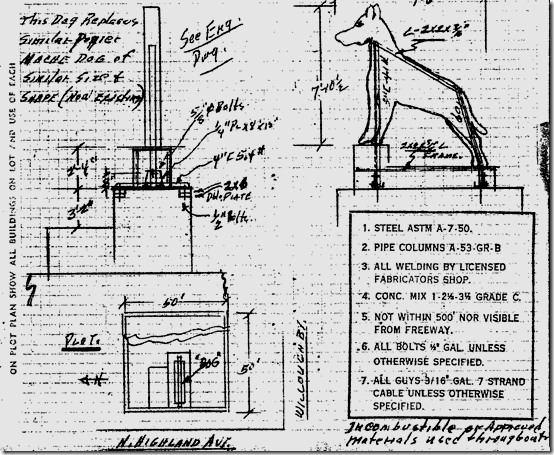 This Dog Replaces
Similar Papier
Mache Dog of
Similar Size &
Shape (Now Existing)
See Eng.
Dwg.
5/8" ø Bolts
1/4" PL x 8" x 15"
2x6
DBL PLATE
1/2" Bolts
2'-4"
3'-2"
ON PLOT PLAN SHOW ALL BUILDINGS ON LOT AND USE OF EACH
L-2x2x3/16"
7'-10 1/2
FRAME.
1. STEEL ASTM A-7-50.
2. PIPE COLUMNS A-53-GR-B
3. ALL WELDING BY LICENSED
FABRICATORS SHOP.
4. CONC. MIX 1-2½-3½ GRADE C.
5. NOT WITHIN 500' NOR VISIBLE
FROM FREEWAY.
6. ALL BOLTS ½" GAL UNLESS
OTHERWISE SPECIFIED.
7. ALL GUYS 3/16" GAL. 7 STRAND
CABLE UNLESS OTHERWISE
SPECIFIED.
Incombustible or Approved
Materials used throughout
50'
PLOT.
N
"DOG"
50'
WILLOUGHBY.
N. HIGHLAND AVE.